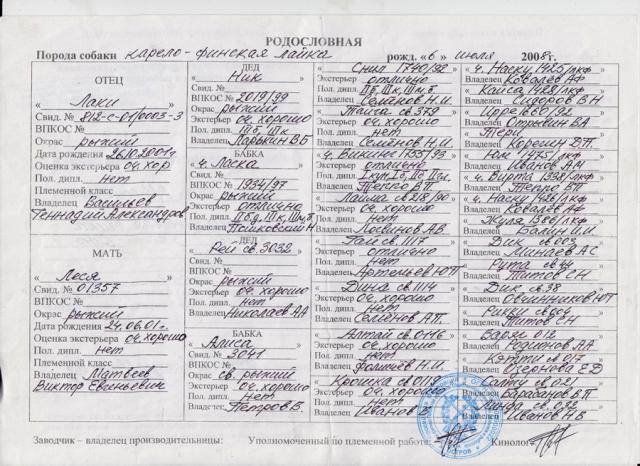 РОДОСЛОВНАЯ
Порода собаки карело-финская лайка рожд. «6» июля 2008 г.
ОТЕЦ
« Лаки »
Свид. №
ВПКОС №
Окрас рыжий
Дата рождения 26.10.2001г
Оценка экстерьера оч. хор
Пол. дипл. нет
Племенной класс
Владелец Васильев
Геннадий Александров
МАТЬ
« Леся »
Свид. № 01357
ВПКОС №
Окрас рыжий
Дата рождения 24.06.01г.
Оценка экстерьера оч. хорошо
Пол. дипл. нет
Племенной класс
Владелец Матвеев
Виктор Евгеньевич
ДЕД
« Ник »
Свид. №
ВПКОС № 2019/99
Окрас рыжий
Экстерьер оч. хорошо
Пол. дипл.
Владелец Ларькин В.Б
БАБКА
« ч. Ласка »
Свид. №
ВПКОС № 1934/97
Окрас рыжий
Экстерьер отлично
Пол. дипл.
Владелец
ДЕД
« Рей св. 3032 »
Свид. №
ВПКОС №
Окрас рыжий
Экстерьер оч. хорошо
Пол. дипл. нет
Владелец Николаев АА
БАБКА
« Алиса »
Свид. № 3041
ВПКОС №
Окрас св. рыжий
Экстерьер оч. хорошо
Пол. дипл. нет
Владелец Петров В.
« Снип 1740/92 »
Экстерьер отлично
Пол. дипл.
Владелец Семёнов Н.И.
« Тайга св 379 »
Экстерьер оч. хорошо
Пол. дипл. нет
Владелец Семёнов Н.И
« ч. Викинг 1557/93 »
Экстерьер отлично
Пол. дипл.
Владелец Тепло В П
« Лайма св 218/90 »
Экстерьер оч. хорошо
Пол. дипл. нет
Владелец Логвинов АВ
« Гай св. 1117 »
Экстерьер отлично
Пол. дипл. нет
Владелец Артемьев Ю П
« Дина св. 1114 »
Экстерьер оч. хорошо
Пол. дипл. нет
Владелец Семёнов А.П.
« Алтай св 0146 »
Экстерьер оч. хорошо
Пол. дипл. нет
Владелец Фомичев Н.И.
« Крошка св 0119 »
Экстерьер оч. хорошо
Пол. дипл. нет
Владелец Иванов В
« ч. Наску 1425/лкф »
Владелец Ковалев АФ
« Кайса 1428/лкф »
Владелец Сидоров В Н
« 660/92 »
Владелец
« Тери »
Владелец Корешин Д.П.
« Юм 1475/лкф »
Владелец Иванов А.
« ч. Вита 1338/лкф »
Владелец Тепло В П
« ч. Наску 1426/лкф »
Владелец Ковалев Аф
« Жуля 1386/лкф »
Владелец Балин И.И
« Дик св 003 »
Владелец Минаев АС
« Рита св 41 »
Владелец Титов С Н
« Дик св. 38 »
Владелец Овчинников Ю П
« Рикки св 004 »
Владелец Титов С Н
« Барси 012 »
Владелец Родионов АА
« Кэтти св 017 »
Владелец Озернова Е Д
« св. 021 »
Владелец Барабанов В П
« Линда св. 092 »
Владелец Иванов Н.В
Заводчик – владелец производительницы: Уполномоченный по племенной работе: Кинолог